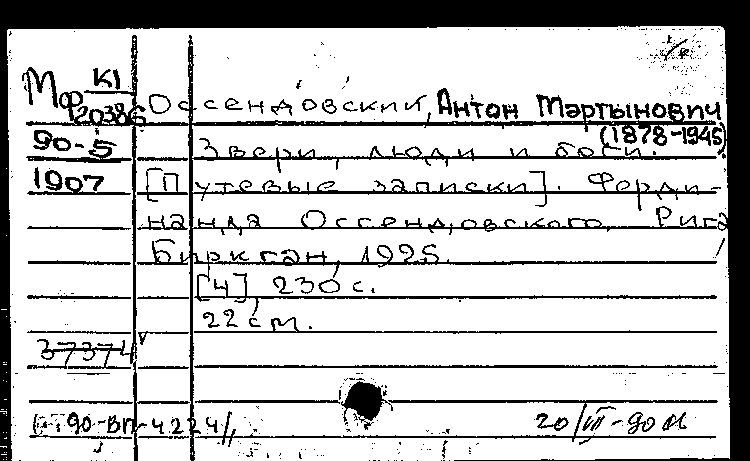 Мф К1
120386 Оссендовский, Антон Мартынович
(1878-1945)
90-5 Звери, люди и боги.
1907 [Путевые записки]. Ферди-
нанда Оссендовского. Рига
Биркган, 1925.
[4], 230 с.
22 см.
37374
90-ВП-4224/, 20/III-90